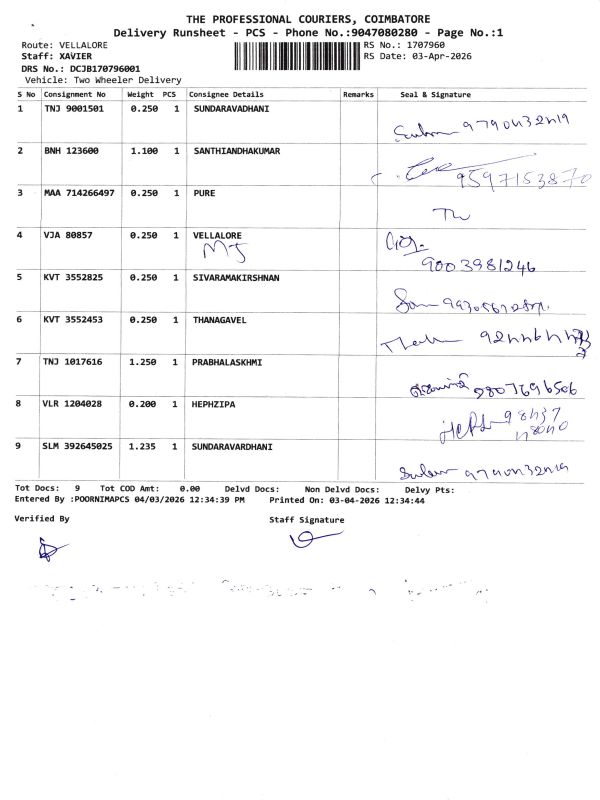 THE PROFESSIONAL COURIERS, COIMBATORE
Delivery Runsheet - PCS - Phone No.:9047080280 - Page No.:1
Route: VELLALORE RS No.: 1707960
Staff: XAVIER RS Date: 03-Apr-2026
DRS No.: DCJB170796001
Vehicle: Two Wheeler Delivery
S No Consignment No Weight PCS Consignee Details Remarks Seal & Signature
1 TNJ 9001501 0.250 1 SUNDARAVADHANI
2 BNH 123600 1.100 1 SANTHIANDHAKUMAR
9597153870
3 MAA 714266497 0.250 1 PURE
4 VJA 80857 0.250 1 VELLALORE
MJ
9003981246
5 KVT 3552825 0.250 1 SIVARAMAKIRSHNAN
6 KVT 3552453 0.250 1 THANAGAVEL
7 TNJ 1017616 1.250 1 PRABHALASKHMI
9807696506
8 VLR 1204028 0.200 1 HEPHZIPA
9 SLM 392645025 1.235 1 SUNDARAVARDHANI
Tot Docs: 9 Tot COD Amt: 0.00 Delvd Docs: Non Delvd Docs: Delvy Pts:
Entered By :POORNIMAPCS 04/03/2026 12:34:39 PM Printed On: 03-04-2026 12:34:44
Verified By Staff Signature